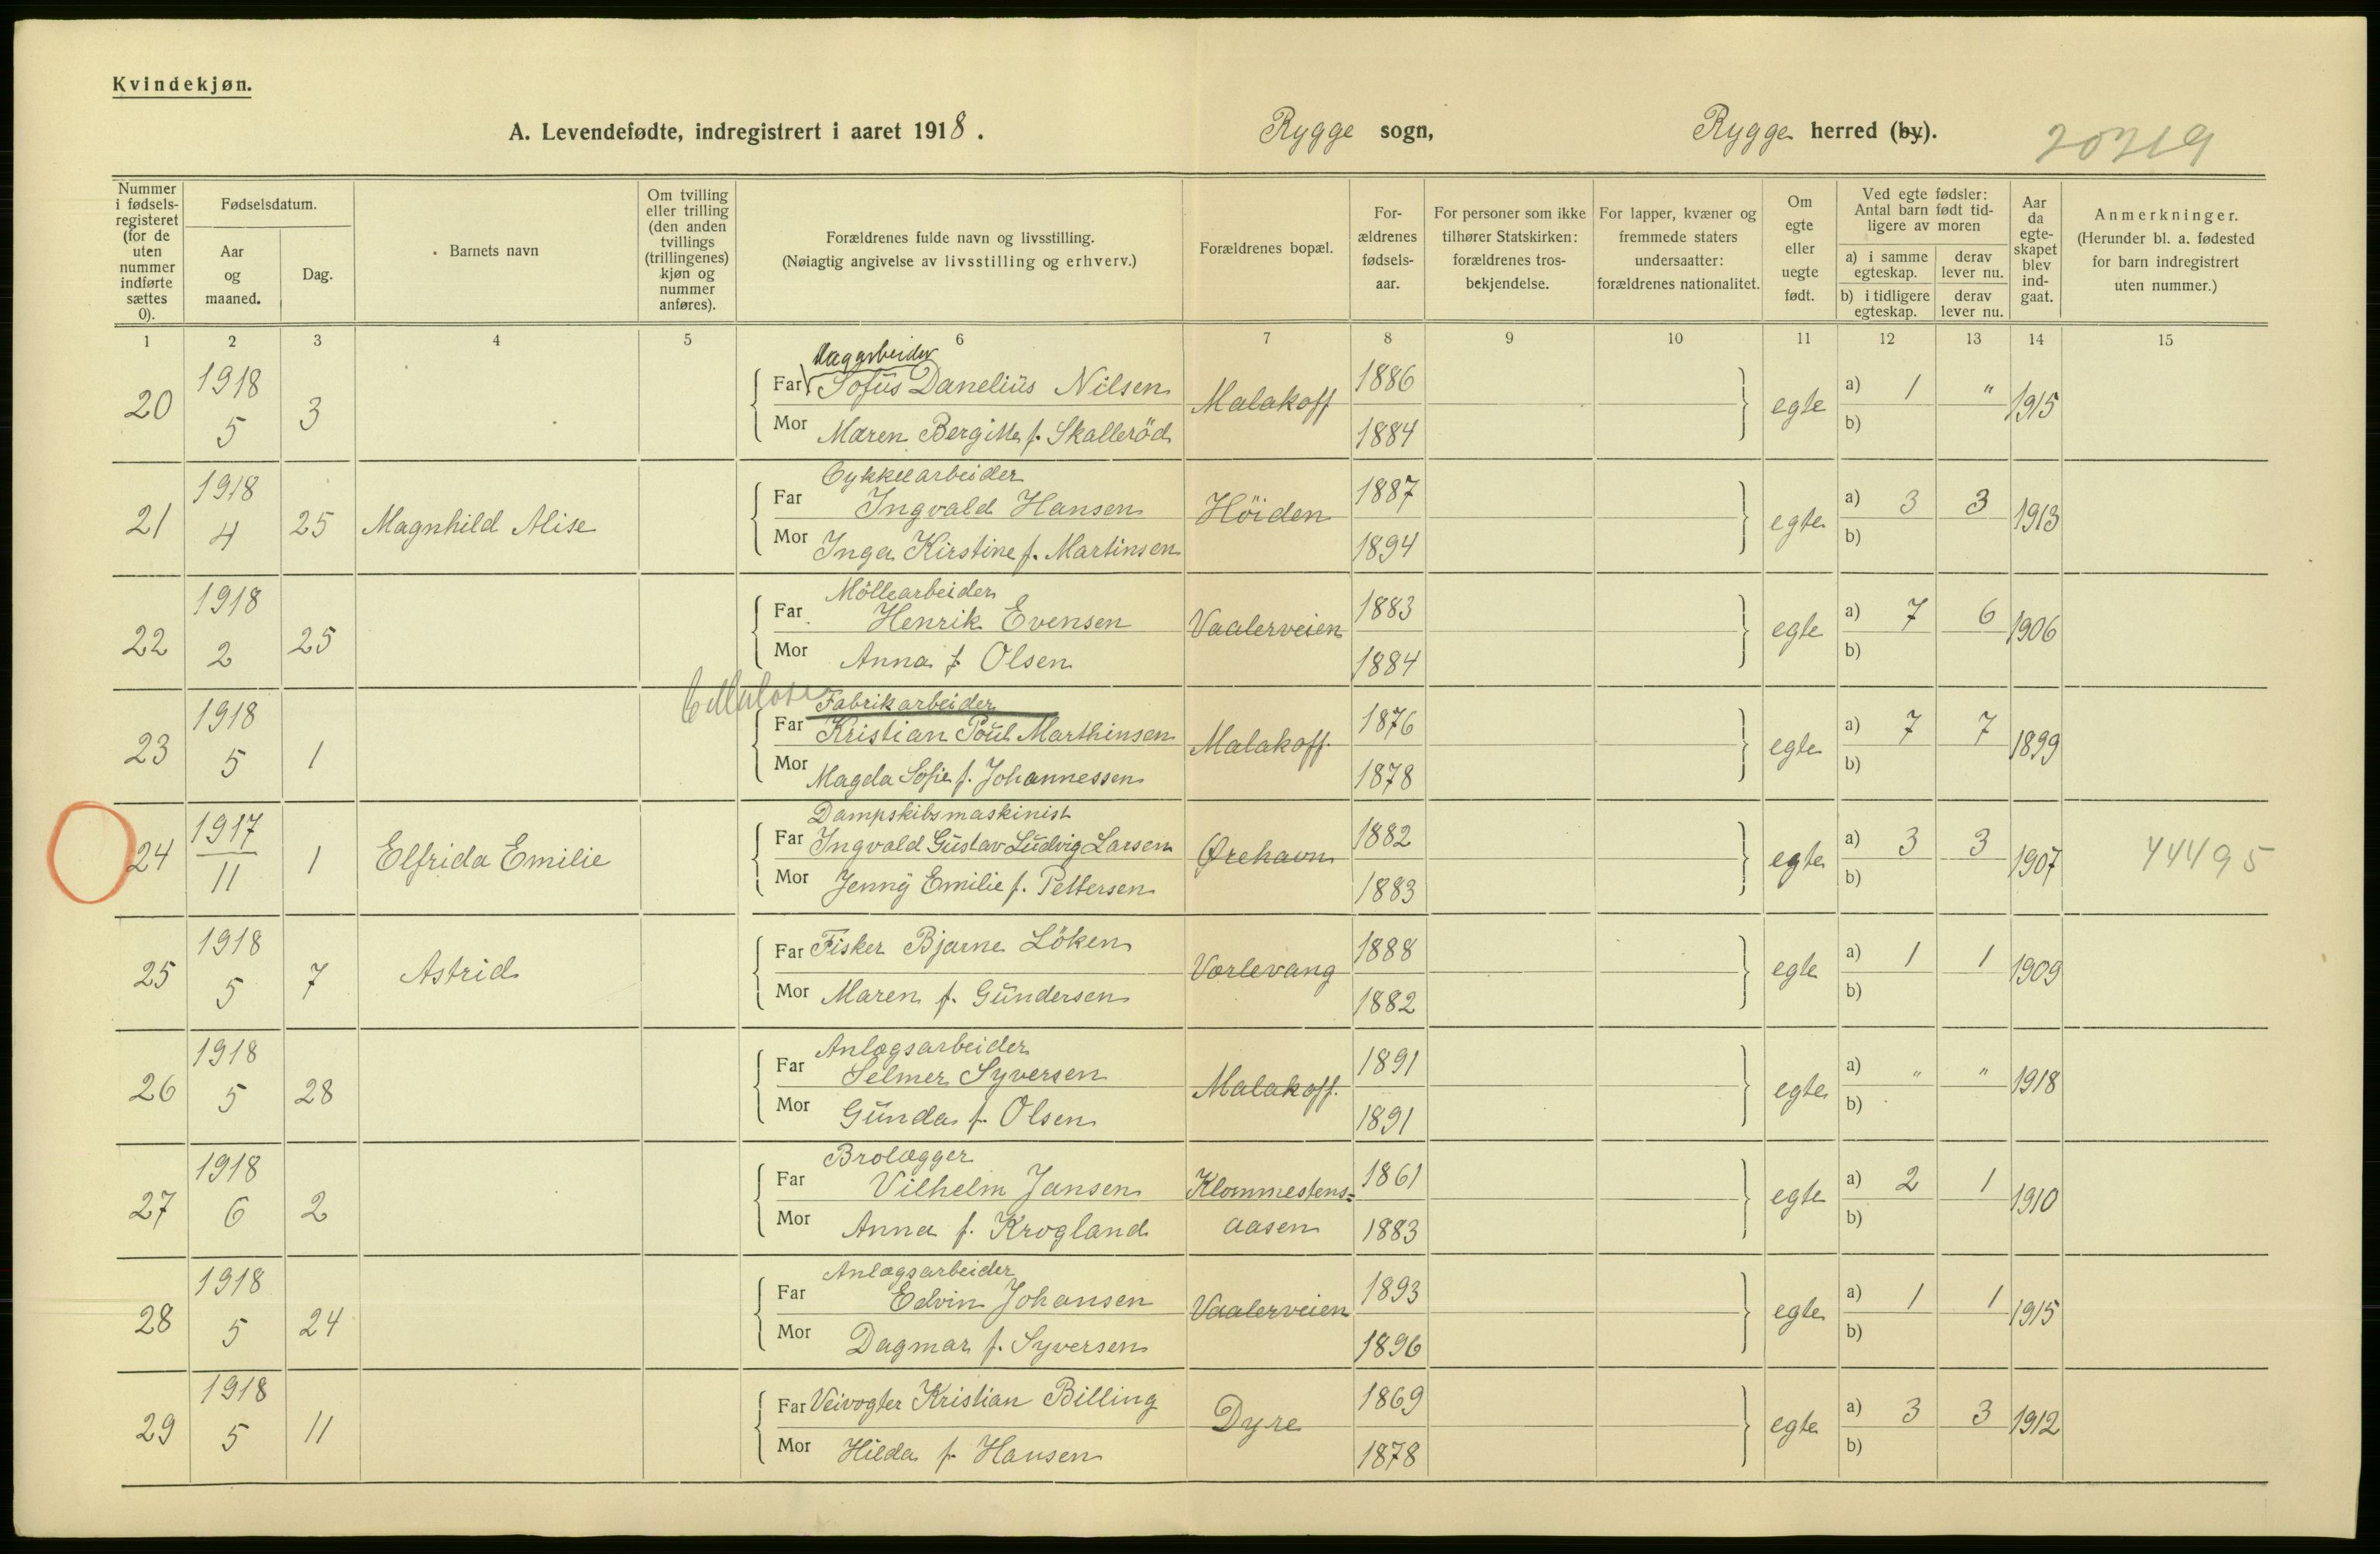 Kvindekjøn.
A. Levendefødte, indregistrert i aaret 1918. Rygge sogn, Rygge herred (by). 20219
Nummer i fødsels-registeret (for de uten nummer indførte sættes 0).
Fødselsdatum.
Aar og maaned.
Dag.
Barnets navn
Om tvilling eller trilling (den anden tvillings (trillingenes) kjøn og nummer anføres).
Forældrenes fulde navn og livsstilling.
(Nøiagtig angivelse av livsstilling og erhverv.)
Forældrenes bopæl.
For-ældrenes fødsels-aar.
For personer som ikke tilhører Statskirken: forældrenes tros-bekjendelse.
For lapper, kvæner og fremmede staters undersaatter: forældrenes nationalitet.
Om egte eller uegte født.
Ved egte fødsler: Antal barn født tid-ligere av moren
a) i samme egteskap.
derav lever nu.
b) i tidligere egteskap.
derav lever nu.
Aar da egte-skapet blev ind-gaat.
Anmerkninger.
(Herunder bl. a. fødested for barn indregistrert uten nummer.)
1 2 3 4 5 6 7 8 9 10 11 12 13 14 15
Daggarbeider
20 1918 5 3 Far Sofus Danelius Nilsen Malakoff 1886 egte a) 1 " 1915
Mor Maren Bergitte f. Skalleröd 1884 b)
Cykkelarbeider
21 1918 4 25 Magnhild Alise Far Ingvald Hansen Höiden 1887 egte a) 3 3 1913
Mor Inga Kirstine f. Martinsen 1894 b)
Möllearbeider
22 1918 2 25 Far Henrik Evensen Vaalerveien 1883 egte a) 7 6 1906
Mor Anna f. Olsen 1884 b)
Cellulose Fabrikarbeider
23 1918 5 1 Far Kristian Poul Marthinsen Malakoff. 1876 egte a) 7 7 1899
Mor Magda Sofie f. Johannessen 1878 b)
Dampskibsmaskinist
24 1917 11 1 Elfrida Emilie Far Ingvald Gustav Ludvig Larsen Ørehavn 1882 egte a) 3 3 1907 44495
Mor Jenny Emilie f. Pettersen 1883 b)
25 1918 5 7 Astrid Far Fisker Bjarne Löken Vorlevang 1888 egte a) 1 1 1909
Mor Maren f. Gundersen 1882 b)
Anlægsarbeider
26 1918 5 28 Far Selmer Syversen Malakoff. 1891 egte a) " " 1918
Mor Gunda f. Olsen 1891 b)
Brolægger
27 1918 6 2 Far Vilhelm Jansen Klommestens- 1861 egte a) 2 1 1910
Mor Anna f. Krogland aasen 1883 b)
Anlægsarbeider
28 1918 5 24 Far Edvin Johansen Vaalerveien 1893 egte a) 1 1 1915
Mor Dagmar f. Syversen 1896 b)
29 1918 5 11 Far Veivogter Kristian Billing Dyre 1869 egte a) 3 3 1912
Mor Hilda f. Hansen 1878 b)